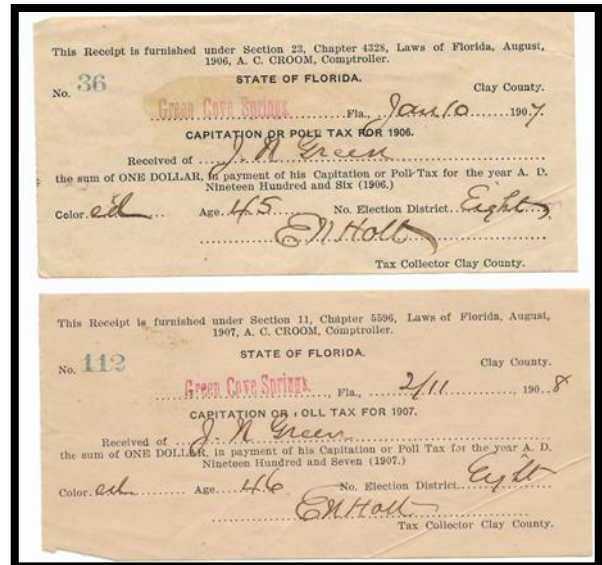 This Receipt is furnished under Section 23, Chapter 4328, Laws of Florida, August,
1906, A. C. CROOM, Comptroller.
STATE OF FLORIDA.
No. 36 Clay County.
Green Cove Springs, Fla., Jan 10 1907.
CAPITATION OR POLL TAX FOR 1906.
Received of J. N Green
the sum of ONE DOLLAR, in payment of his Capitation or Poll Tax for the year A. D.
Nineteen Hundred and Six (1906.)
Color ed Age 45 No. Election District Eight
E N Holt
Tax Collector Clay County.
This Receipt is furnished under Section 11, Chapter 5596, Laws of Florida, August,
1907, A. C. CROOM, Comptroller.
STATE OF FLORIDA.
No. 112 Clay County.
Green Cove Springs, Fla., 2/11, 1908
CAPITATION OR OLL TAX FOR 1907.
Received of J. N Green
the sum of ONE DOLLAR, in payment of his Capitation or Poll Tax for the year A. D.
Nineteen Hundred and Seven (1907.)
Color Age 46 No. Election District Eight
E N Holt
Tax Collector Clay County.